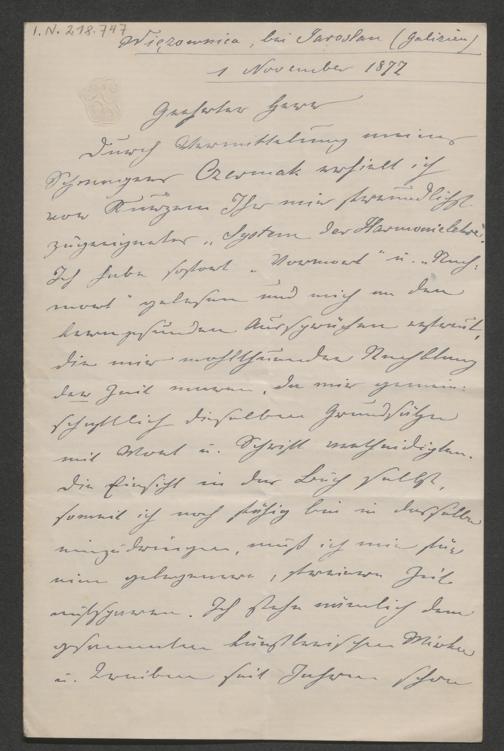 I.N. 218.747
Więzownica, bei Jaroslau (Galizien)
1 November 1877
Geehrter Herr
Durch Vermittelung meines
Schwagers Czermak erhielt ich
vor Kurzem Ihr mir freundlichst
zugeeignetes „System der Harmonielehre".
Ich habe sofort „Vorwort" u. „Nach-
wort" gelesen und mich an den
kerngesunden Aussprüchen erfreut,
die mir wohlthuender Nachklang
der Zeit waren, da wir gemein-
schaftlich dieselben Grundsätze
mit Wort u. Schrift vertheidigten.
Die Einsicht in das Buch selbst,
soweit ich noch fähig bin in dasselbe
einzudringen, muß ich mir für
eine gelegenere, freiere Zeit
aufsparen. Ich stehe nämlich dem
gesammten künstlerischen Wirken
u. Treiben seit Jahren schon